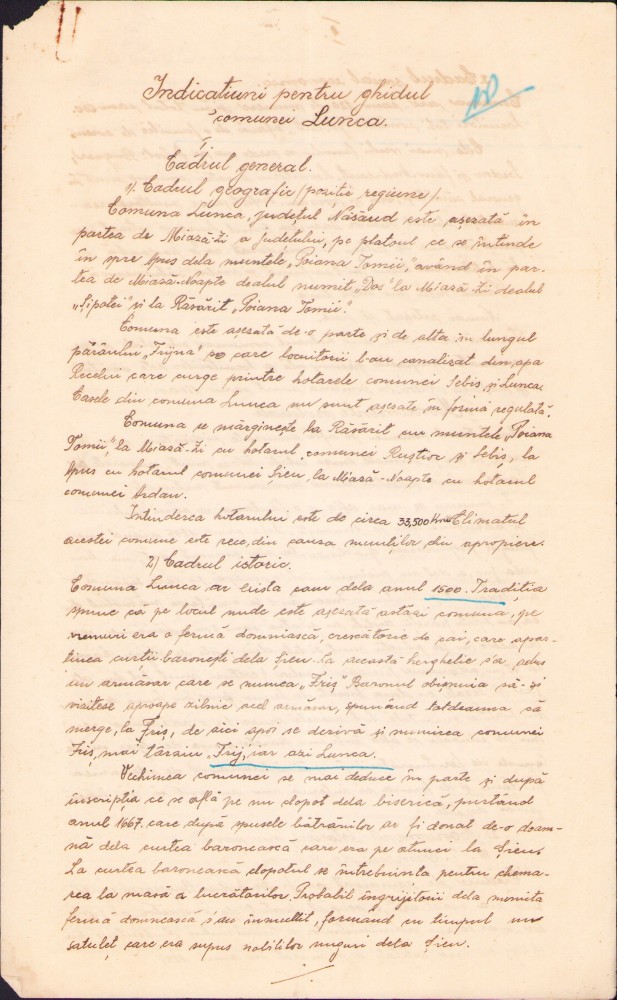 Indicatiuni pentru ghidul
comunei Lunca.
I.
Cadrul general.
1). Cadrul geografic /poziție regiune/.
Comuna Lunca, județul Năsăud este așezată în
partea de Miază-zi a județului, pe platoul ce se întinde
în spre Apus dela muntele „Poiana Tomii”, având în par-
tea de Miază-Noapte dealul numit „Dos” la Miază-zi dealul
„Șipotei” și la Răsărit „Poiana Tomii”.
Comuna este așezată de-o parte și de alta în lungul
părăului „Frijna” pe care locuitorii l-au canalizat din apa
Recelui care curge printre hotarele comunei Sebiș și Lunca.
Casele din comuna Lunca nu sunt așezate în formă regulată.
Comuna se mărginește la Răsărit cu muntele „Poiana
Tomii”, la Miază-zi cu hotarul comunei Ruștior și Sebiș, la
Apus cu hotarul comunei Șieu, la Miază-Noapte cu hotarul
comunei Ardan.
Intinderea hotarului este de circa 33,500 Km² Climatul
acestei comune este rece, din cauza munților din apropiere.
2) Cadrul istoric.
Comuna Lunca ar exista cam dela anul 1500. Tradiția
spune că pe locul unde este așezată astăzi comuna, pe
vremuri era o fermă domniască, crescătorie de cai, care apar-
tinea curții baronești dela Șieu. La această herghelie s'a adus
un armăsar care se numea „Friș” Baronul obișnuia să-și
viziteze aproape zilnic acel armăsar, spunând totdeauna că
merge, la Friș, de aici apoi se derivă și numirea comunei
Friș, mai târziu „Frij”, iar azi Lunca.
Vechimea comunei se mai deduce în parte și după
inscripția ce se află pe un clopot dela biserică, purtând
anul 1667. care după spusele bătrânilor ar fi donat de-o doam-
nă dela curtea baronească care era pe atunci la Șieu.
La curtea baronească clopotul se întrebuința pentru chema-
rea la masă a lucrătorilor. Probabil îngrijitorii dela numita
fermă domnească s'au inmultit, formând cu timpul un
satuleț care era supus nobililor unguri dela Șieu.